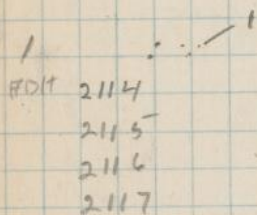 1 1
2114
2115
2116
2117